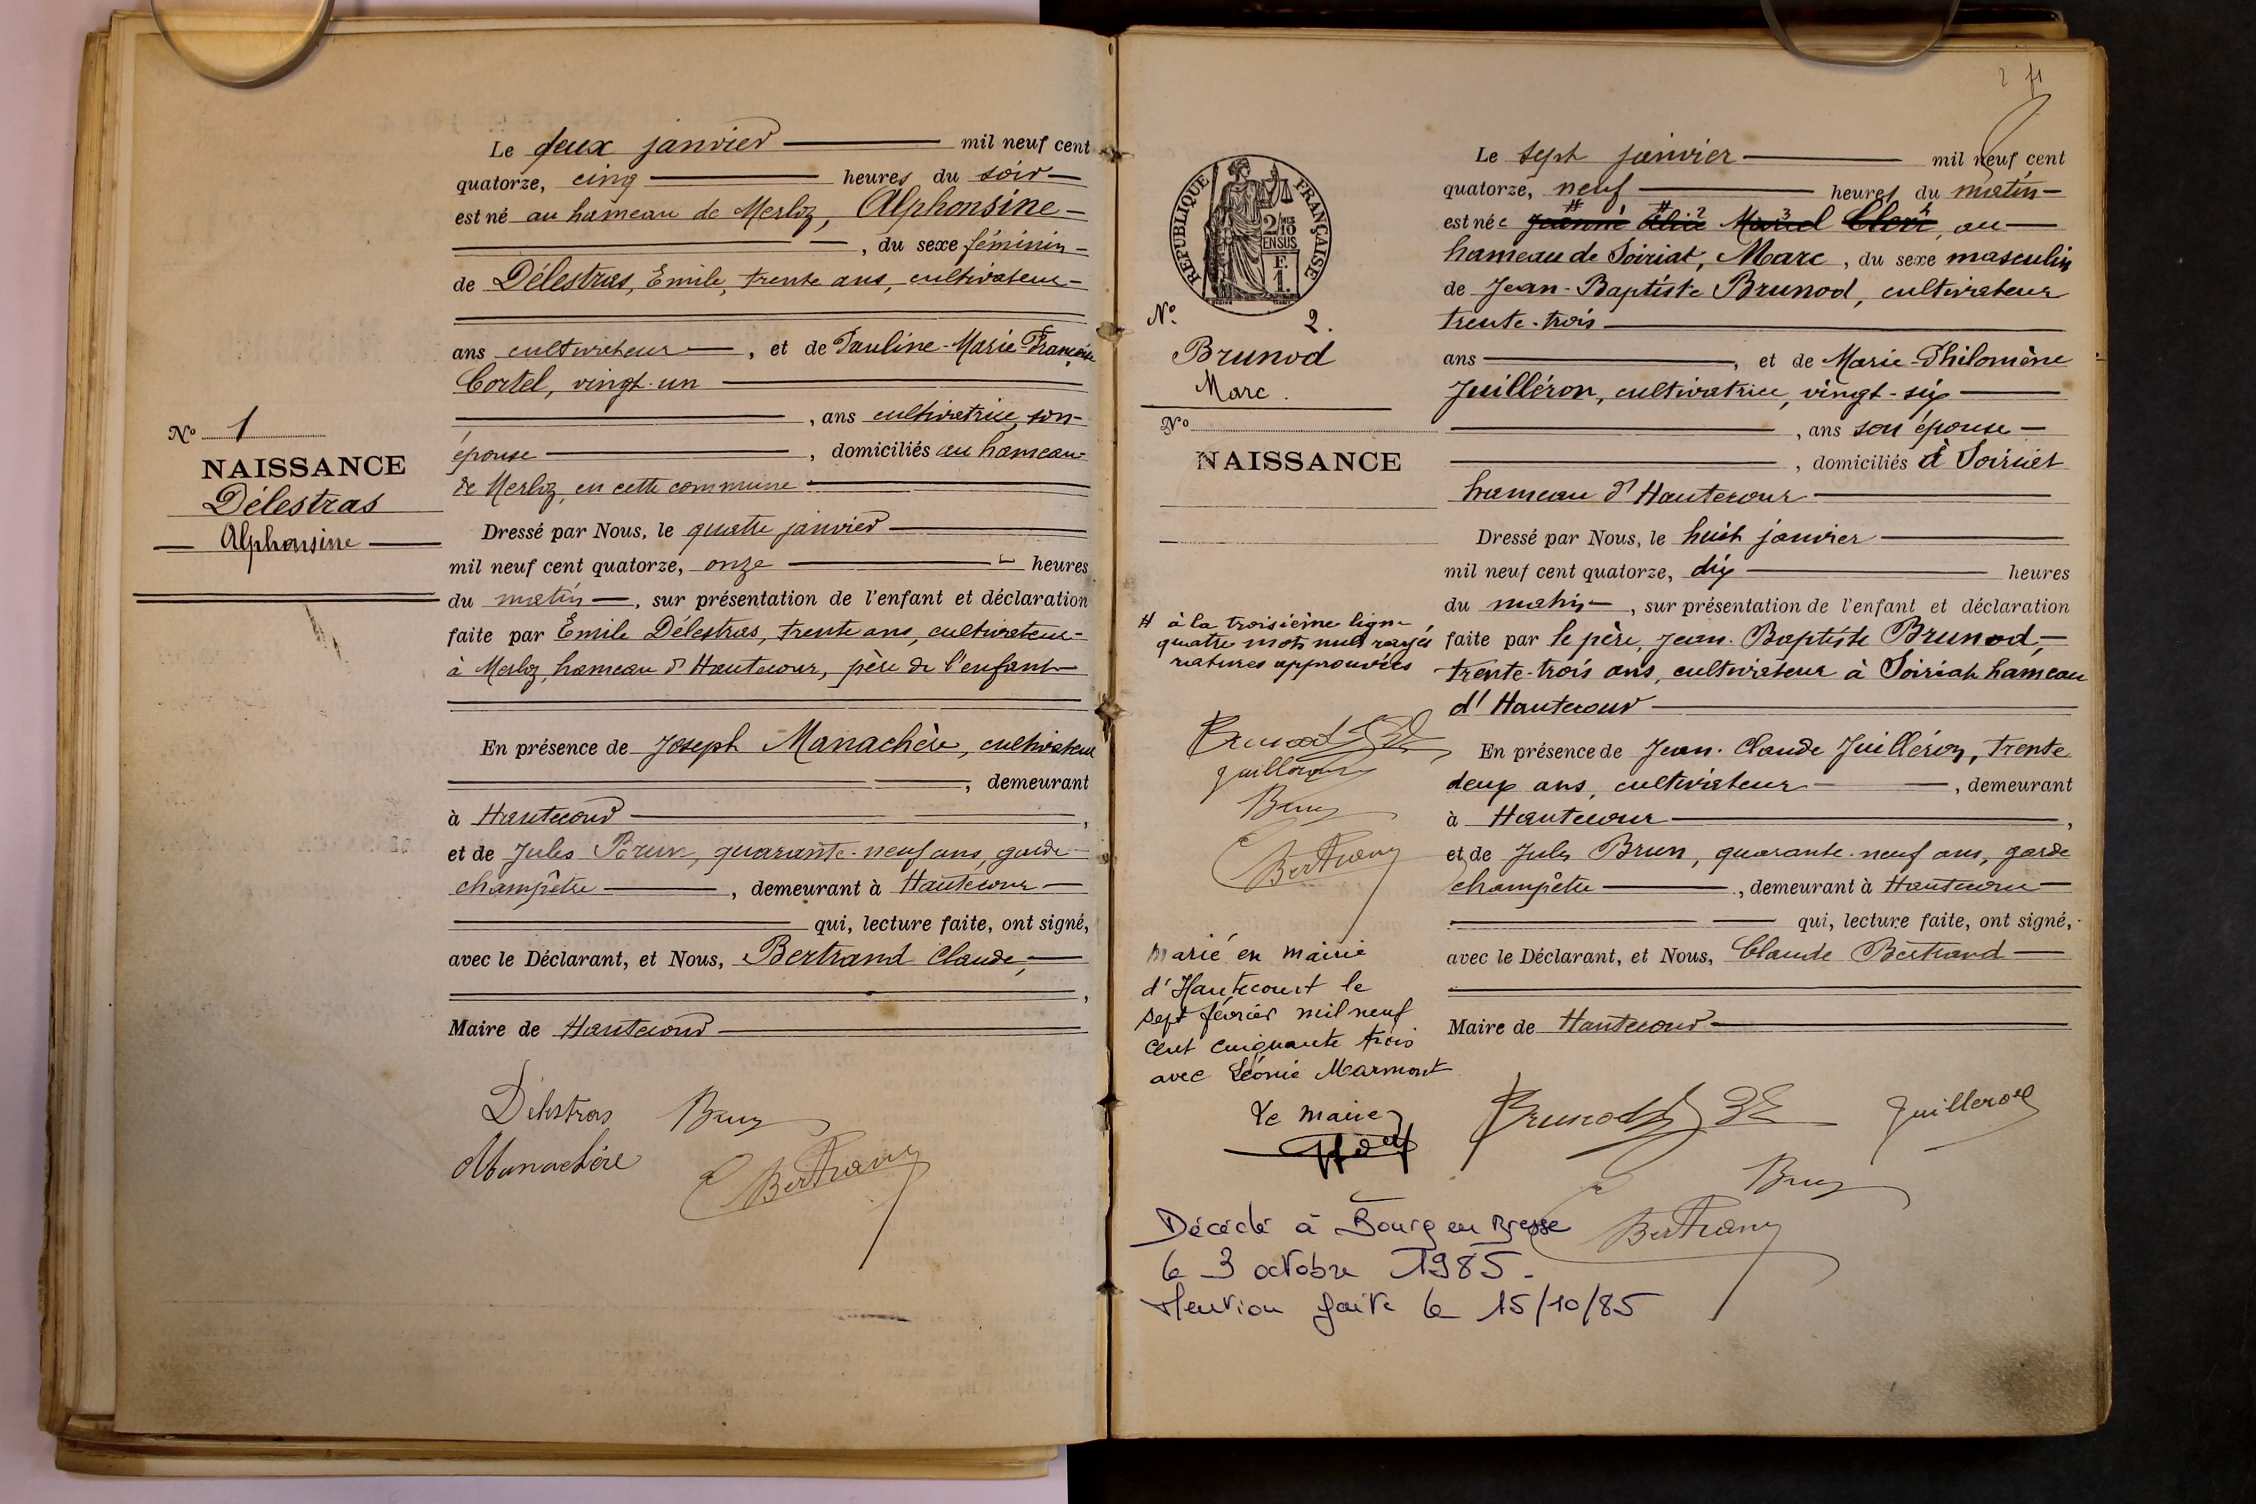 Le deux janvier mil neuf cent
quatorze, cinq heures du soir
est né au hameau de Merloz, Alphonsine
, du sexe féminin
de Délestras, Emile, trente ans, cultivateur
ans cultivateur, et de Pauline-Marie-Françoise
Cortel, vingt-un
, ans cultivatrice, son
épouse, domiciliés au hameau
de Merloz, en cette commune
Dressé par Nous, le quatre janvier
mil neuf cent quatorze, onze heures
du matin, sur présentation de l'enfant et déclaration
faite par Emile Délestras, trente ans, cultivateur
à Merloz, hameau d'Hautecour, père de l'enfant
En présence de Joseph Manachère, cultivateur
, demeurant
à Hautecour,
et de Jules Brun, quarante-neuf ans, garde
champêtre, demeurant à Hautecour
qui, lecture faite, ont signé,
avec le Déclarant, et Nous, Bertrand Claude,
,
Maire de Hautecour
Délestras Brun
Manachère
C Bertrand
No 1
NAISSANCE
Délestras
Alphonsine
2
Le sept janvier mil neuf cent
quatorze, neuf heures du matin
est née au
hameau de Soiriat, Marc, du sexe masculin
de Jean-Baptiste Brunod, cultivateur
trente-trois
ans, et de Marie-Philomène
Juilléron, cultivatrice, vingt-six
, ans son épouse
, domiciliés à Soiriat
hameau d'Hautecour
Dressé par Nous, le huit janvier
mil neuf cent quatorze, dix heures
du matin, sur présentation de l'enfant et déclaration
faite par le père, Jean-Baptiste Brunod,
trente-trois ans, cultivateur à Soiriat hameau
d'Hautecour
En présence de Jean-Claude Juilléron, trente
deux ans, cultivateur, demeurant
à Hautecour,
et de Jules Brun, quarante-neuf ans, garde
champêtre, demeurant à Hautecour
qui, lecture faite, ont signé,
avec le Déclarant, et Nous, Claude Bertrand
Maire de Hautecour
Brunod Juilleron
Brun
C Bertrand
RÉPUBLIQUE FRANÇAISE
2/10
EN SUS
F.
1.
No 2.
Brunod
Marc.
No
NAISSANCE
# à la troisième ligne
quatre mots nuls rayés
ratures approuvées
Brunod
Juilleron
Brun
C Bertrand
Marié en mairie
d'Hautecourt le
sept février mil neuf
cent cinquante trois
avec Léonie Marmont
Le maire
Décédé à Bourg en Bresse
le 3 octobre 1985.
Mention faite le 15/10/85